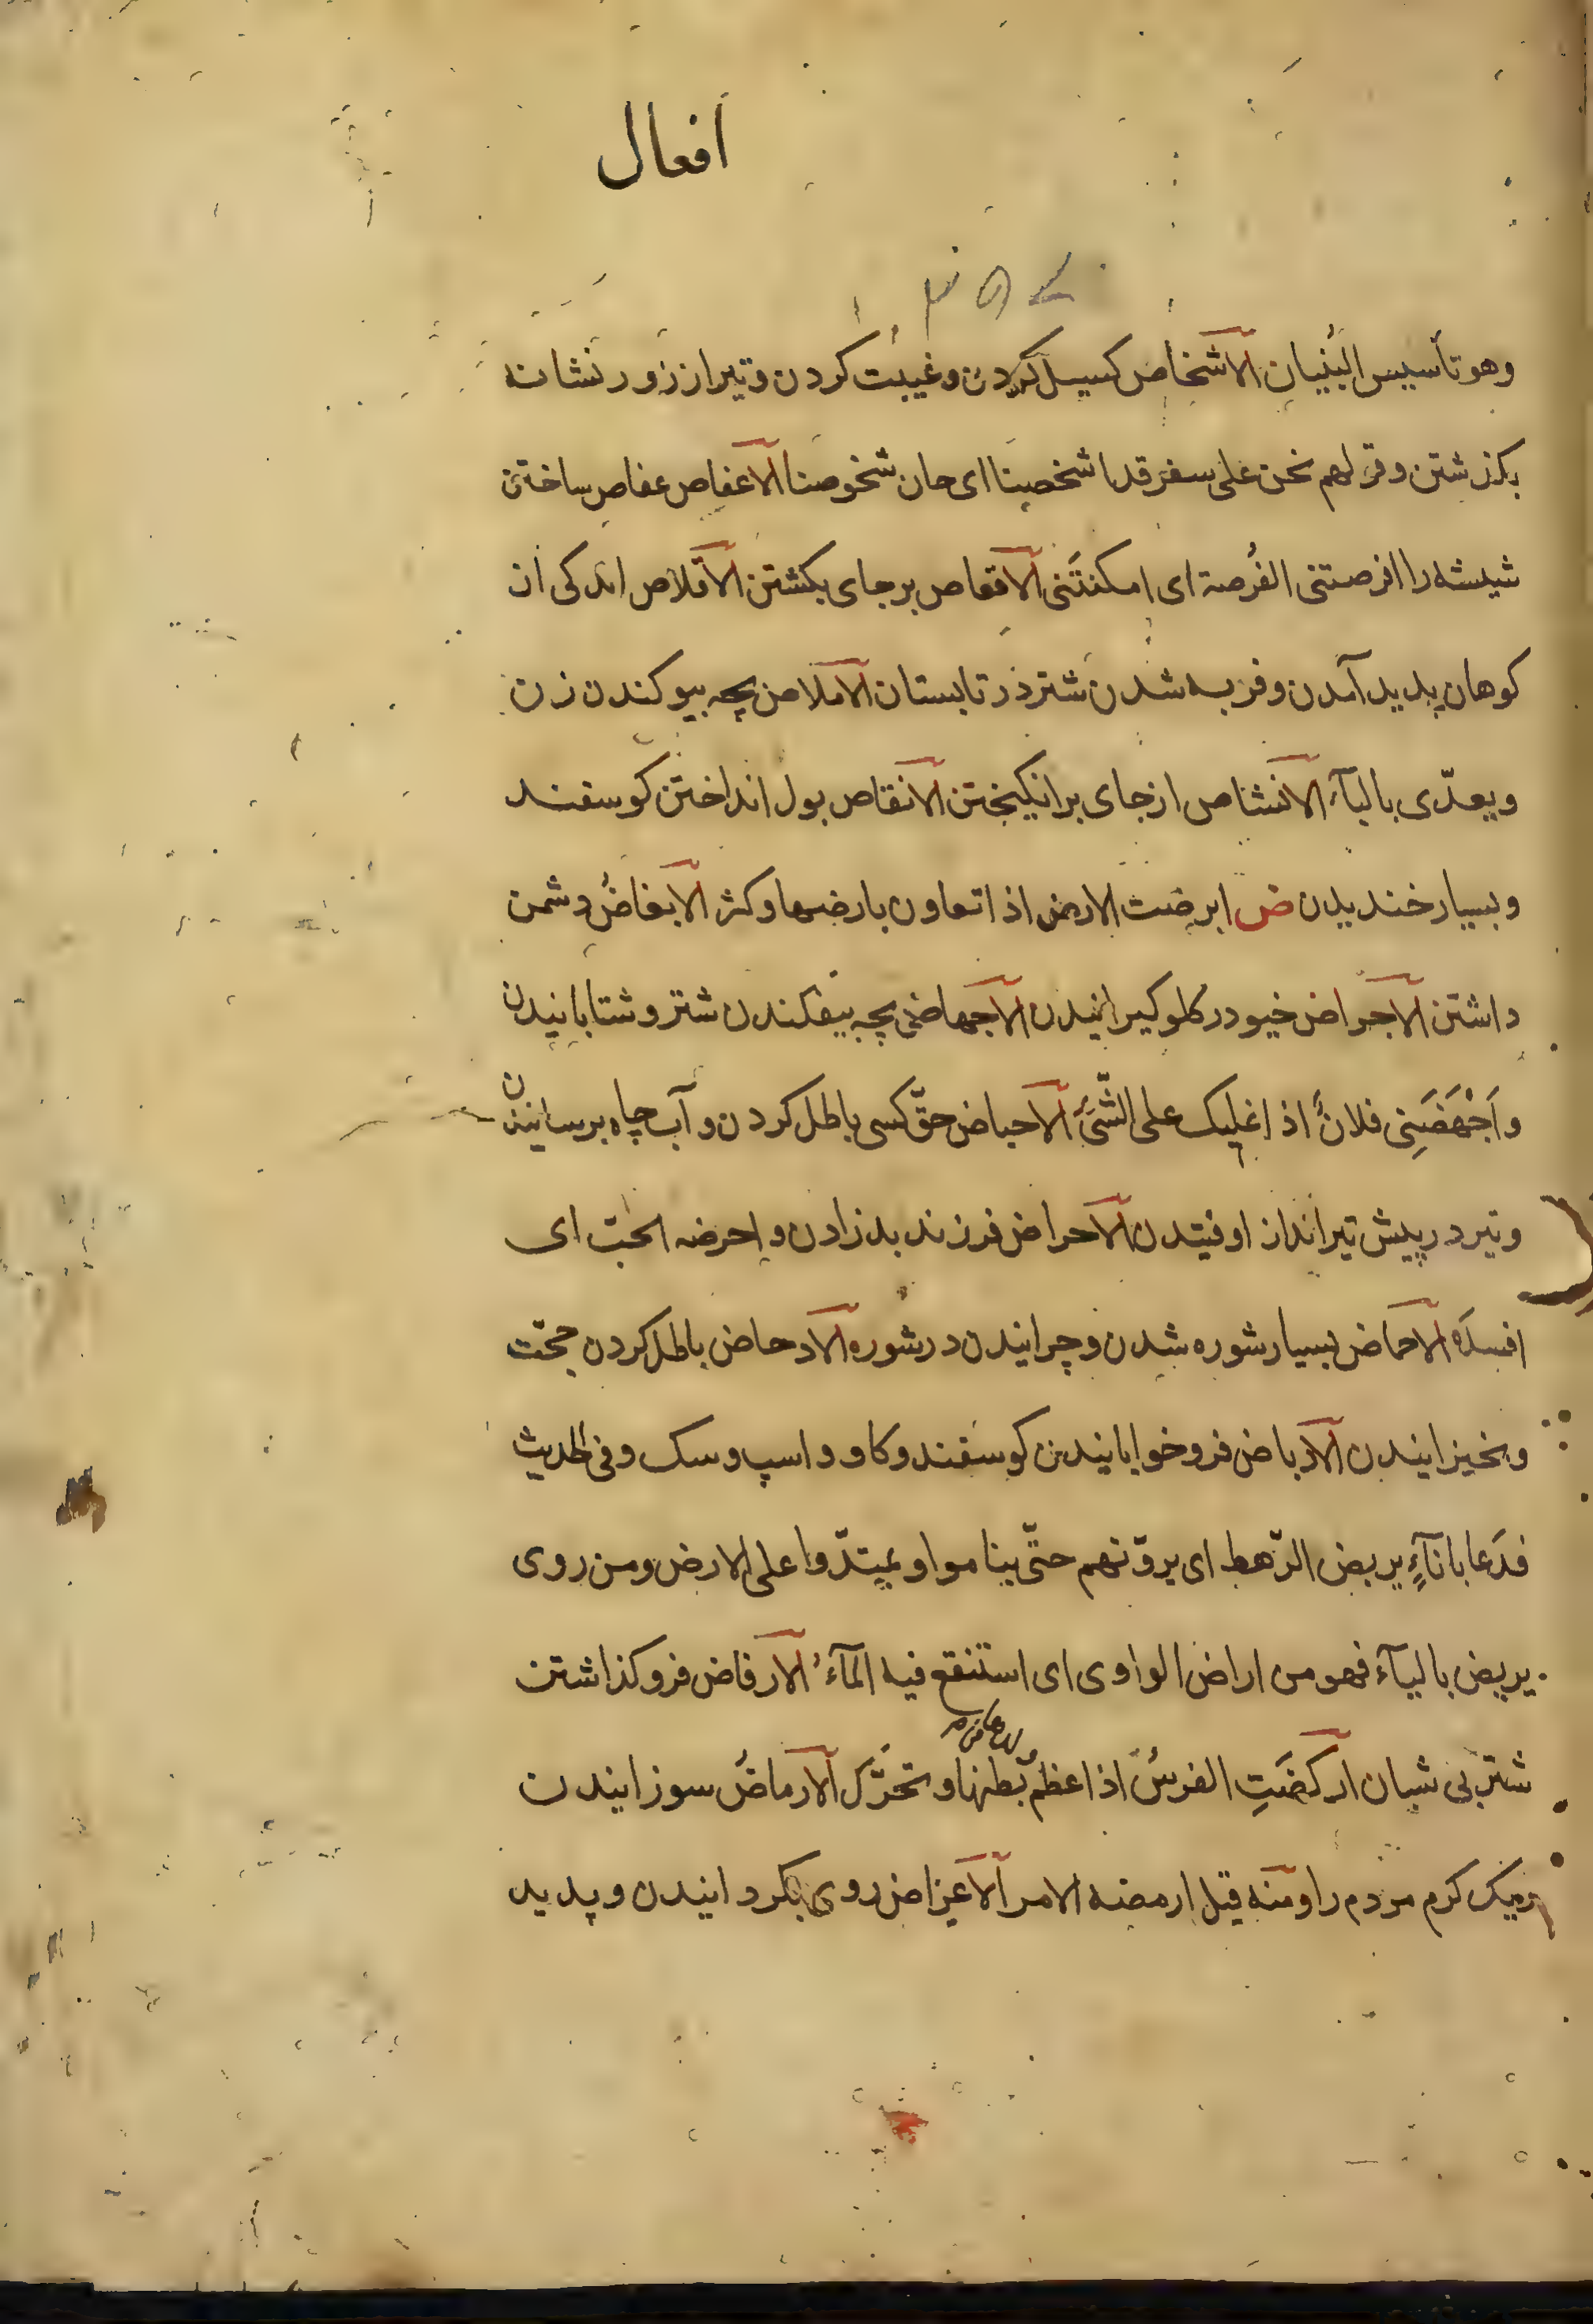 افعال
وهو تأسيس البُنيان الاشخاص كسيل كردن وغيبت كردن وتير از زور نشانه
بكذشتن وقولهم نحن على سفر قد اشخصنا اى حان شخوصنا الاعفاص عفاص ساختن
شيشه را افرصتنى الفُرصة اى امكنتَنى الاقعاص برجاى بكشتن الاقلاص اندكى از
كوهان پديد آمدن وفربه شدن شتر در تابستان الاملاص بچه بيوكندن زن
ويعدّى بالبآء الانشاص ازجاى برانكيختن الانقاص بول انداختن كوسفند
وبسيار خنديدن ض ابرضت الارض اذا تعاون بارضها وكثر الابغاضُ دشمن
داشتن الاجراض خيو در كلو كيرانيدن الاجهاض بچه بيفكندن شتر وشتابانيدن
واَجْهَضَنِى فلانٌ اذا غلبك على الشَّىَٔ الاحباض حقّ كسى باطل كردن وآب چاه برسانيدن
وتير در پيش تيرانداز اوفتيدن الاحراض فرزند بد زادن واحرضه الحبّ اى
افسدَه الاحماض بسيار شوره شدن وچرانيدن در شوره الادحاض باطل كردن حجّت
وبخيزانيدن الارباض فروخوابانيدن كوسفند وكاو واسپ وسك وفى الحديث
فدَعا باناءٍ يربض الرّهط اى يروّنهم حتّى يناموا ويمتدّوا على الارض ومن روى
يريض باليآء فهو من اراض الوادى اى استنقع فيه المآءُ الارفاض فروكذاشتن
شتر بى شبان اركضَتِ الفرسُ اذا عظم بطنها وتحرَّك الارماضُ سوزانيدن
ريك كرم مردم را ومنه قيل ارمضنه الامر الاعراض روى بكردانيدن وپديد